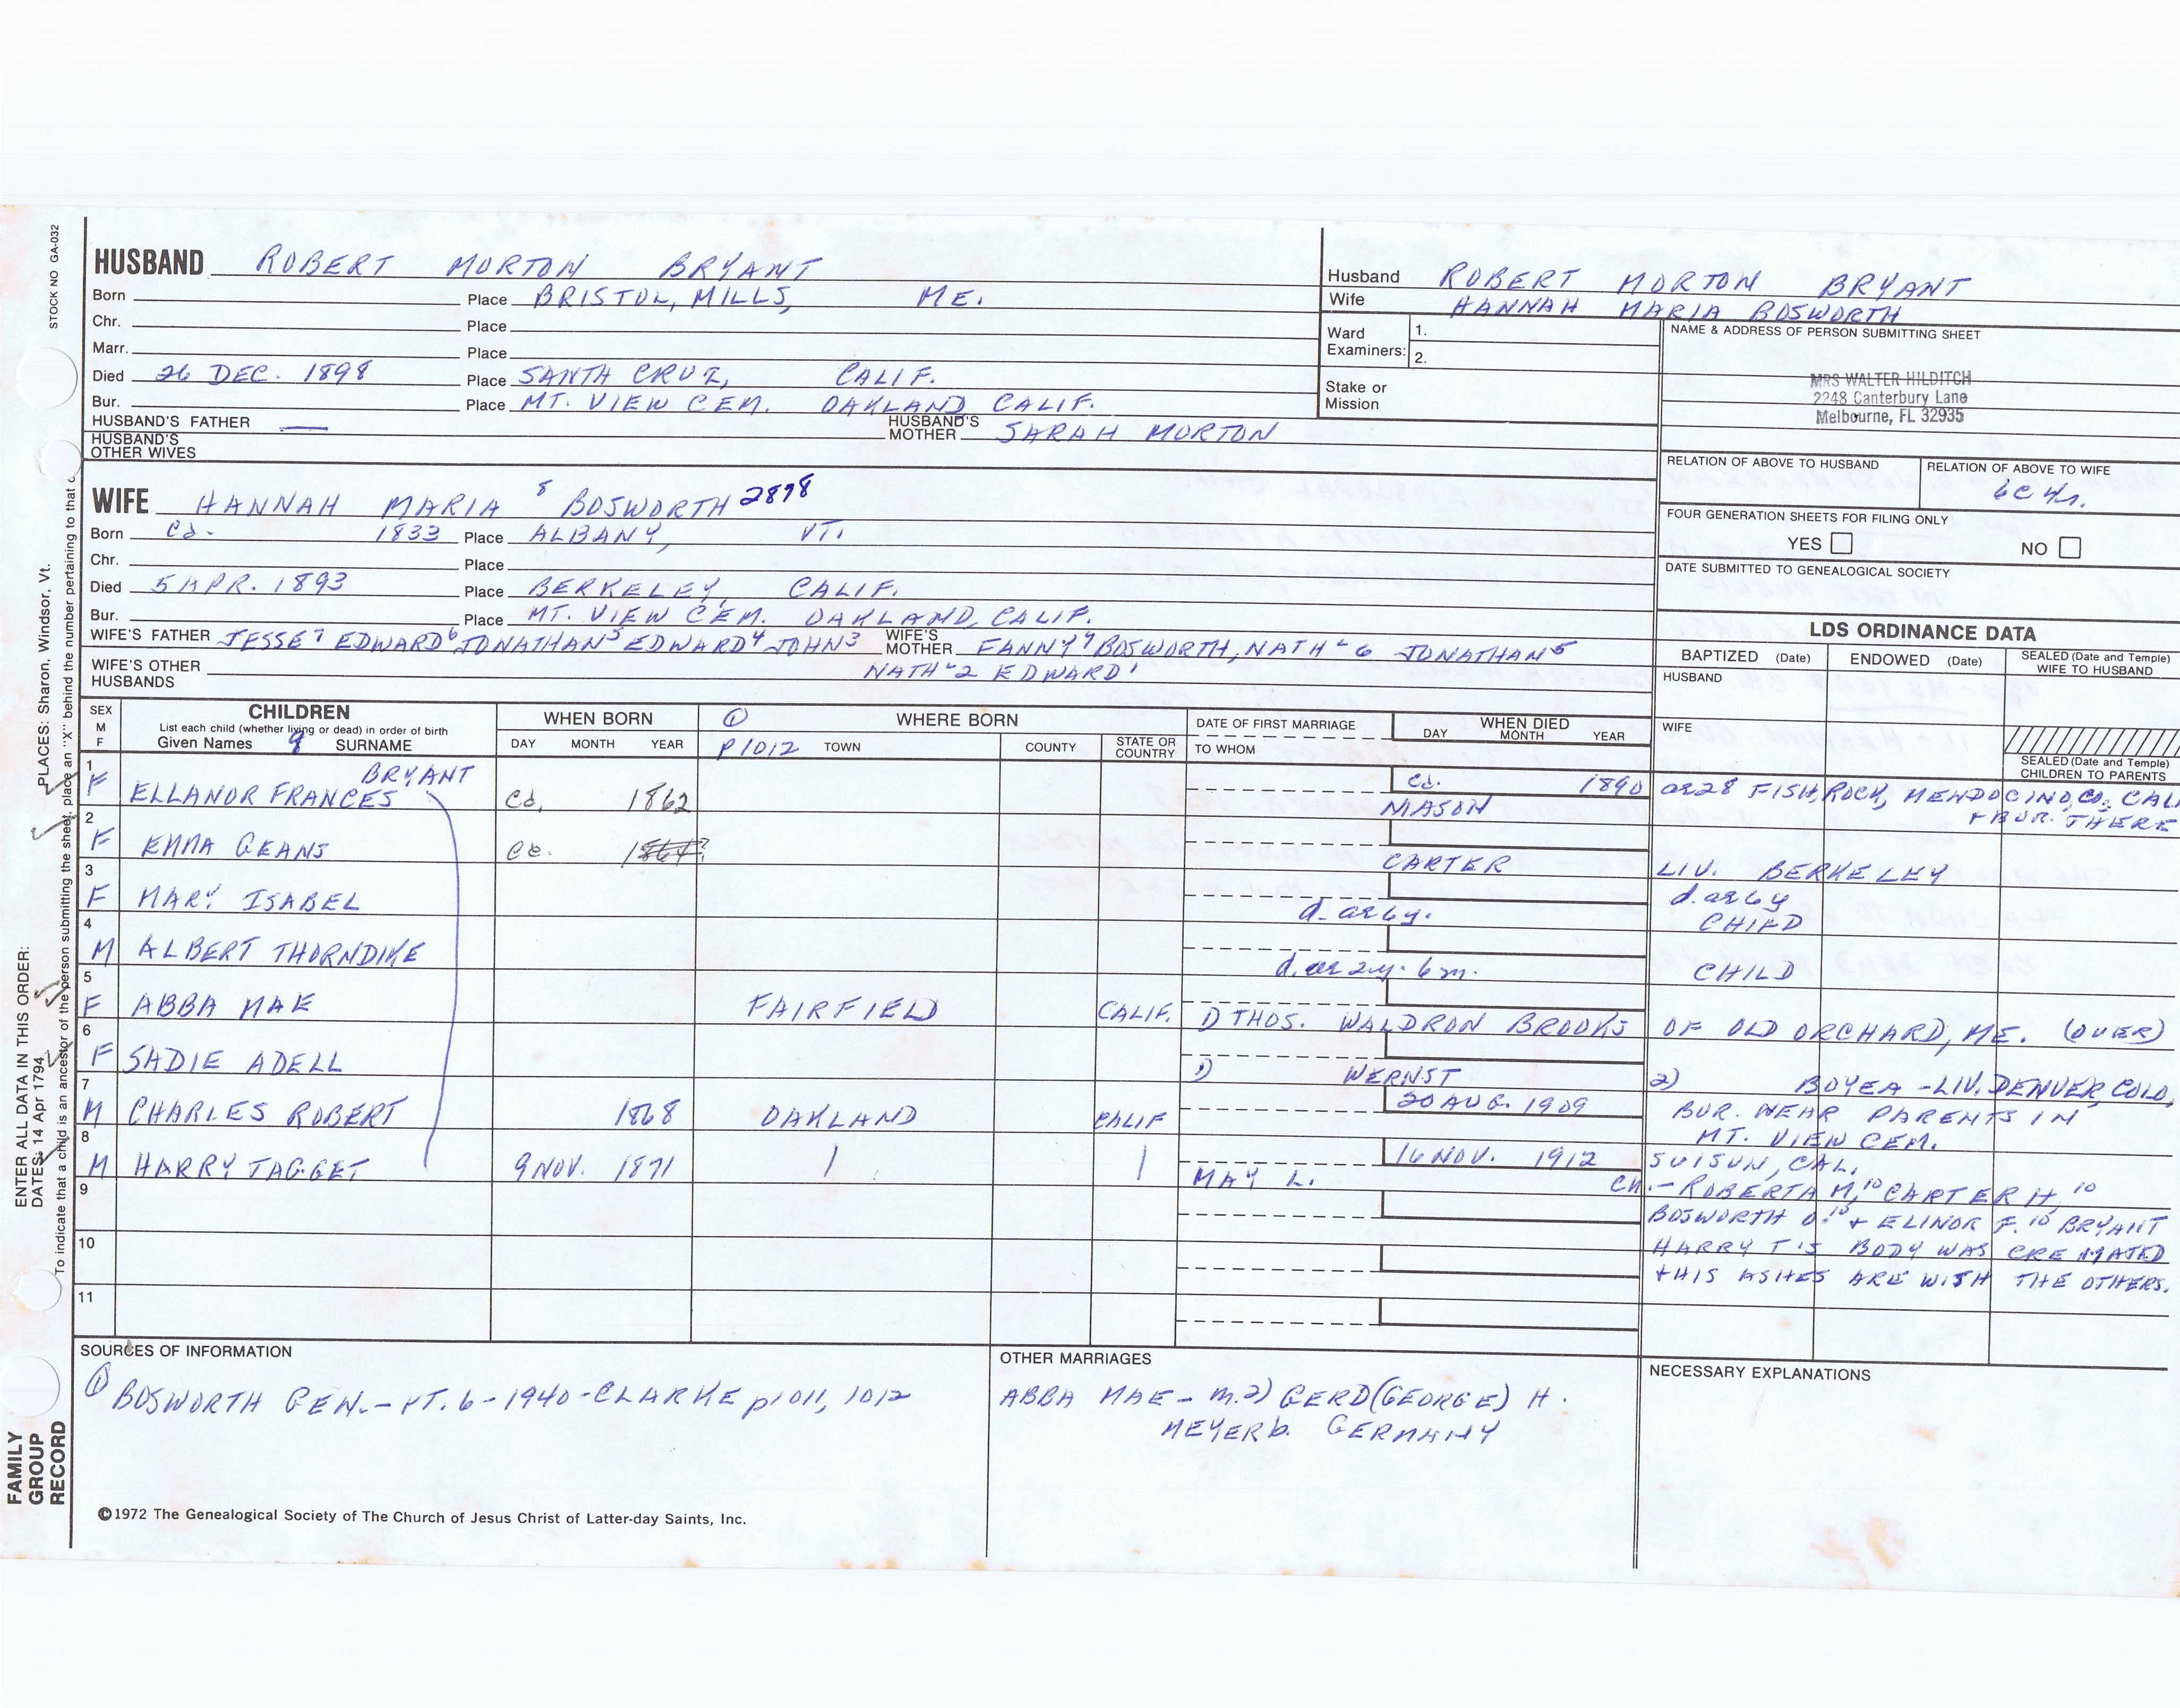 STOCK NO GA-032
HUSBAND ROBERT MORTON BRYANT
Born Place BRISTOL, MILLS, ME.
Chr. Place
Marr. Place
Died 26 DEC. 1898 Place SANTA CRUZ, CALIF.
Bur. Place MT. VIEW CEM. OAKLAND CALIF.
HUSBAND'S FATHER — HUSBAND'S MOTHER SARAH MORTON
HUSBAND'S OTHER WIVES
Husband ROBERT MORTON BRYANT
Wife HANNAH MARIA BOSWORTH
Ward Examiners: 1.
2.
Stake or Mission
NAME & ADDRESS OF PERSON SUBMITTING SHEET
MRS WALTER HILDITCH
2248 Canterbury Lane
Melbourne, FL 32935
RELATION OF ABOVE TO HUSBAND
RELATION OF ABOVE TO WIFE
6C 4r.
FOUR GENERATION SHEETS FOR FILING ONLY
YES NO
DATE SUBMITTED TO GENEALOGICAL SOCIETY
WIFE HANNAH MARIA 8 BOSWORTH 2878
Born ca. 1833 Place ALBANY, VT.
Chr. Place
Died 5 APR. 1893 Place BERKELEY, CALIF.
Bur. Place MT. VIEW CEM. OAKLAND, CALIF.
WIFE'S FATHER JESSE7 EDWARD6 JONATHAN5 EDWARD4 JOHN3 WIFE'S MOTHER FANNY7 BOSWORTH, NATHL6 JONATHAN5
WIFE'S OTHER HUSBANDS NATHL2 EDWARD1
LDS ORDINANCE DATA
BAPTIZED (Date) ENDOWED (Date) SEALED (Date and Temple) WIFE TO HUSBAND
HUSBAND
WIFE
SEALED (Date and Temple) CHILDREN TO PARENTS
SEX M F
CHILDREN
List each child (whether living or dead) in order of birth
Given Names 9 SURNAME
WHEN BORN
DAY MONTH YEAR
① P1012
WHERE BORN
TOWN COUNTY STATE OR COUNTRY
DATE OF FIRST MARRIAGE
TO WHOM
WHEN DIED
DAY MONTH YEAR
1 F ELLANOR FRANCES BRYANT ca. 1862 ca. 1890 ae28 FISH, ROCK, MENDOCINO, CO. CALI
MASON + BUR. THERE
2 F EMMA GEANS ca.
CARTER LIV. BERKELEY
3 F MARY ISABEL d. ae 6y. d. ae 6y CHILD
4 M ALBERT THORNDIKE d. ae 2y. 6m. CHILD
5 F ABBA MAE FAIRFIELD CALIF. 1) THOS. WALDRON BROOKS OF OLD ORCHARD, ME. (OVER)
6 F SADIE ADELL 1) WERNST 2) BOYEA - LIV. DENVER, COLO.
7 M CHARLES ROBERT 1868 OAKLAND CALIF 20 AUG. 1909 BUR. NEAR PARENTS IN
MT. VIEW CEM.
8 M HARRY TAGGET 9 NOV. 1871 16 NOV. 1912 SUISUN, CAL.
MAY L. CH. - ROBERTA M,10 CARTER H,10
9 BOSWORTH O.10 + ELINOR F.10 BRYANT
10 HARRY T'S BODY WAS CREMATED
+ HIS ASHES ARE WITH THE OTHERS.
11
SOURCES OF INFORMATION
① BOSWORTH GEN. - PT. 6 - 1940 - CLARKE p1011, 1012
OTHER MARRIAGES
ABBA MAE - m. 2) GERD (GEORGE) H.
MEYER b. GERMANY
NECESSARY EXPLANATIONS
©1972 The Genealogical Society of The Church of Jesus Christ of Latter-day Saints, Inc.
FAMILY GROUP RECORD
ENTER ALL DATA IN THIS ORDER:
DATES: 14 Apr 1794
PLACES: Sharon, Windsor, Vt.
To indicate that a child is an ancestor of the person submitting the sheet, place an "X" behind the number pertaining to that c